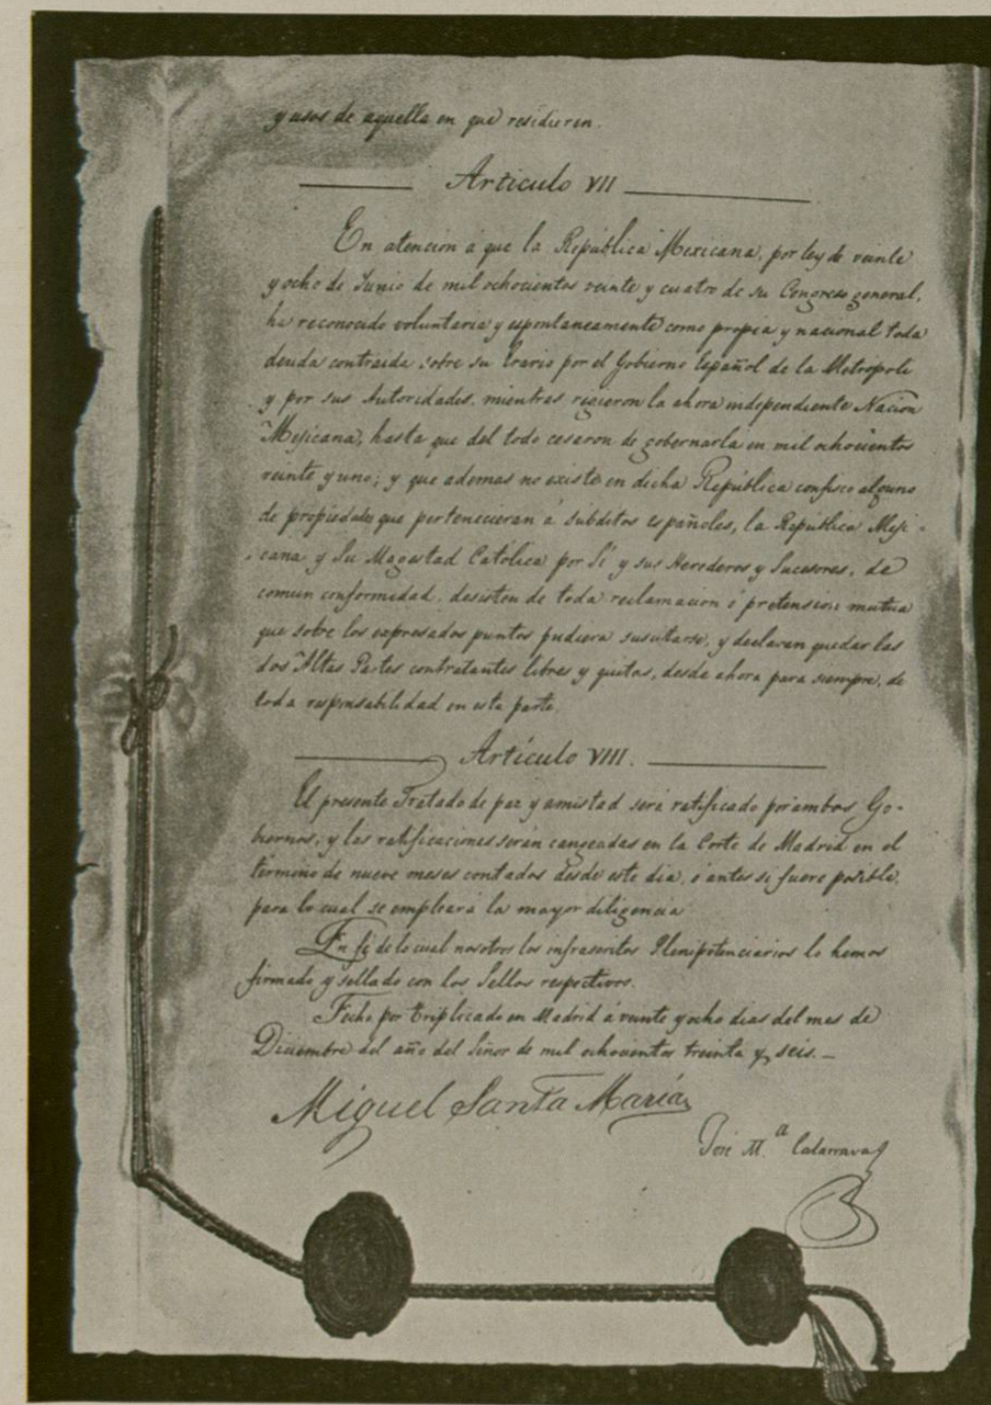 y usos de aquella en que residieren.
Artículo VII
En atencion á que la República Mexicana, por ley de veinte
y ocho de Junio de mil ochocientos veinte y cuatro de su Congreso general,
ha reconocido voluntaria y espontaneamente como propia y nacional toda
deuda contraida sobre su Erario por el Gobierno Español de la Metropoli
y por sus Autoridades, mientras rigieron la ahora independiente Nacion
Mejicana, hasta que del todo cesaron de gobernarla en mil ochocientos
veinte y uno; y que ademas no existe en dicha República confisco alguno
de propiedades que pertenecieran á subditos españoles, la República Meji-
cana y Su Magestad Católica por Sí y sus Herederos y Sucesores, de
comun conformidad, desisten de toda reclamacion ó pretension mutua
que sobre los expresados puntos pudiera suscitarse, y declaran quedar las
dos Altas Partes contratantes libres y quitas, desde ahora para siempre, de
toda responsabilidad en esta parte.
Artículo VIII.
El presente Tratado de paz y amistad será ratificado por ambos Go-
biernos, y las ratificaciones serán cangeadas en la Corte de Madrid en el
término de nueve meses contados desde este dia, ó antes si fuere posible,
para lo cual se empleará la mayor diligencia
En fé de lo cual nosotros los infrascritos Plenipotenciarios lo hemos
firmado y sellado con los Sellos respectivos.
Fecho por triplicado en Madrid á veinte y ocho dias del mes de
Diciembre del año del Señor de mil ochocientos treinta y seis.—
Miguel Santa María
José M.ª Calatrava